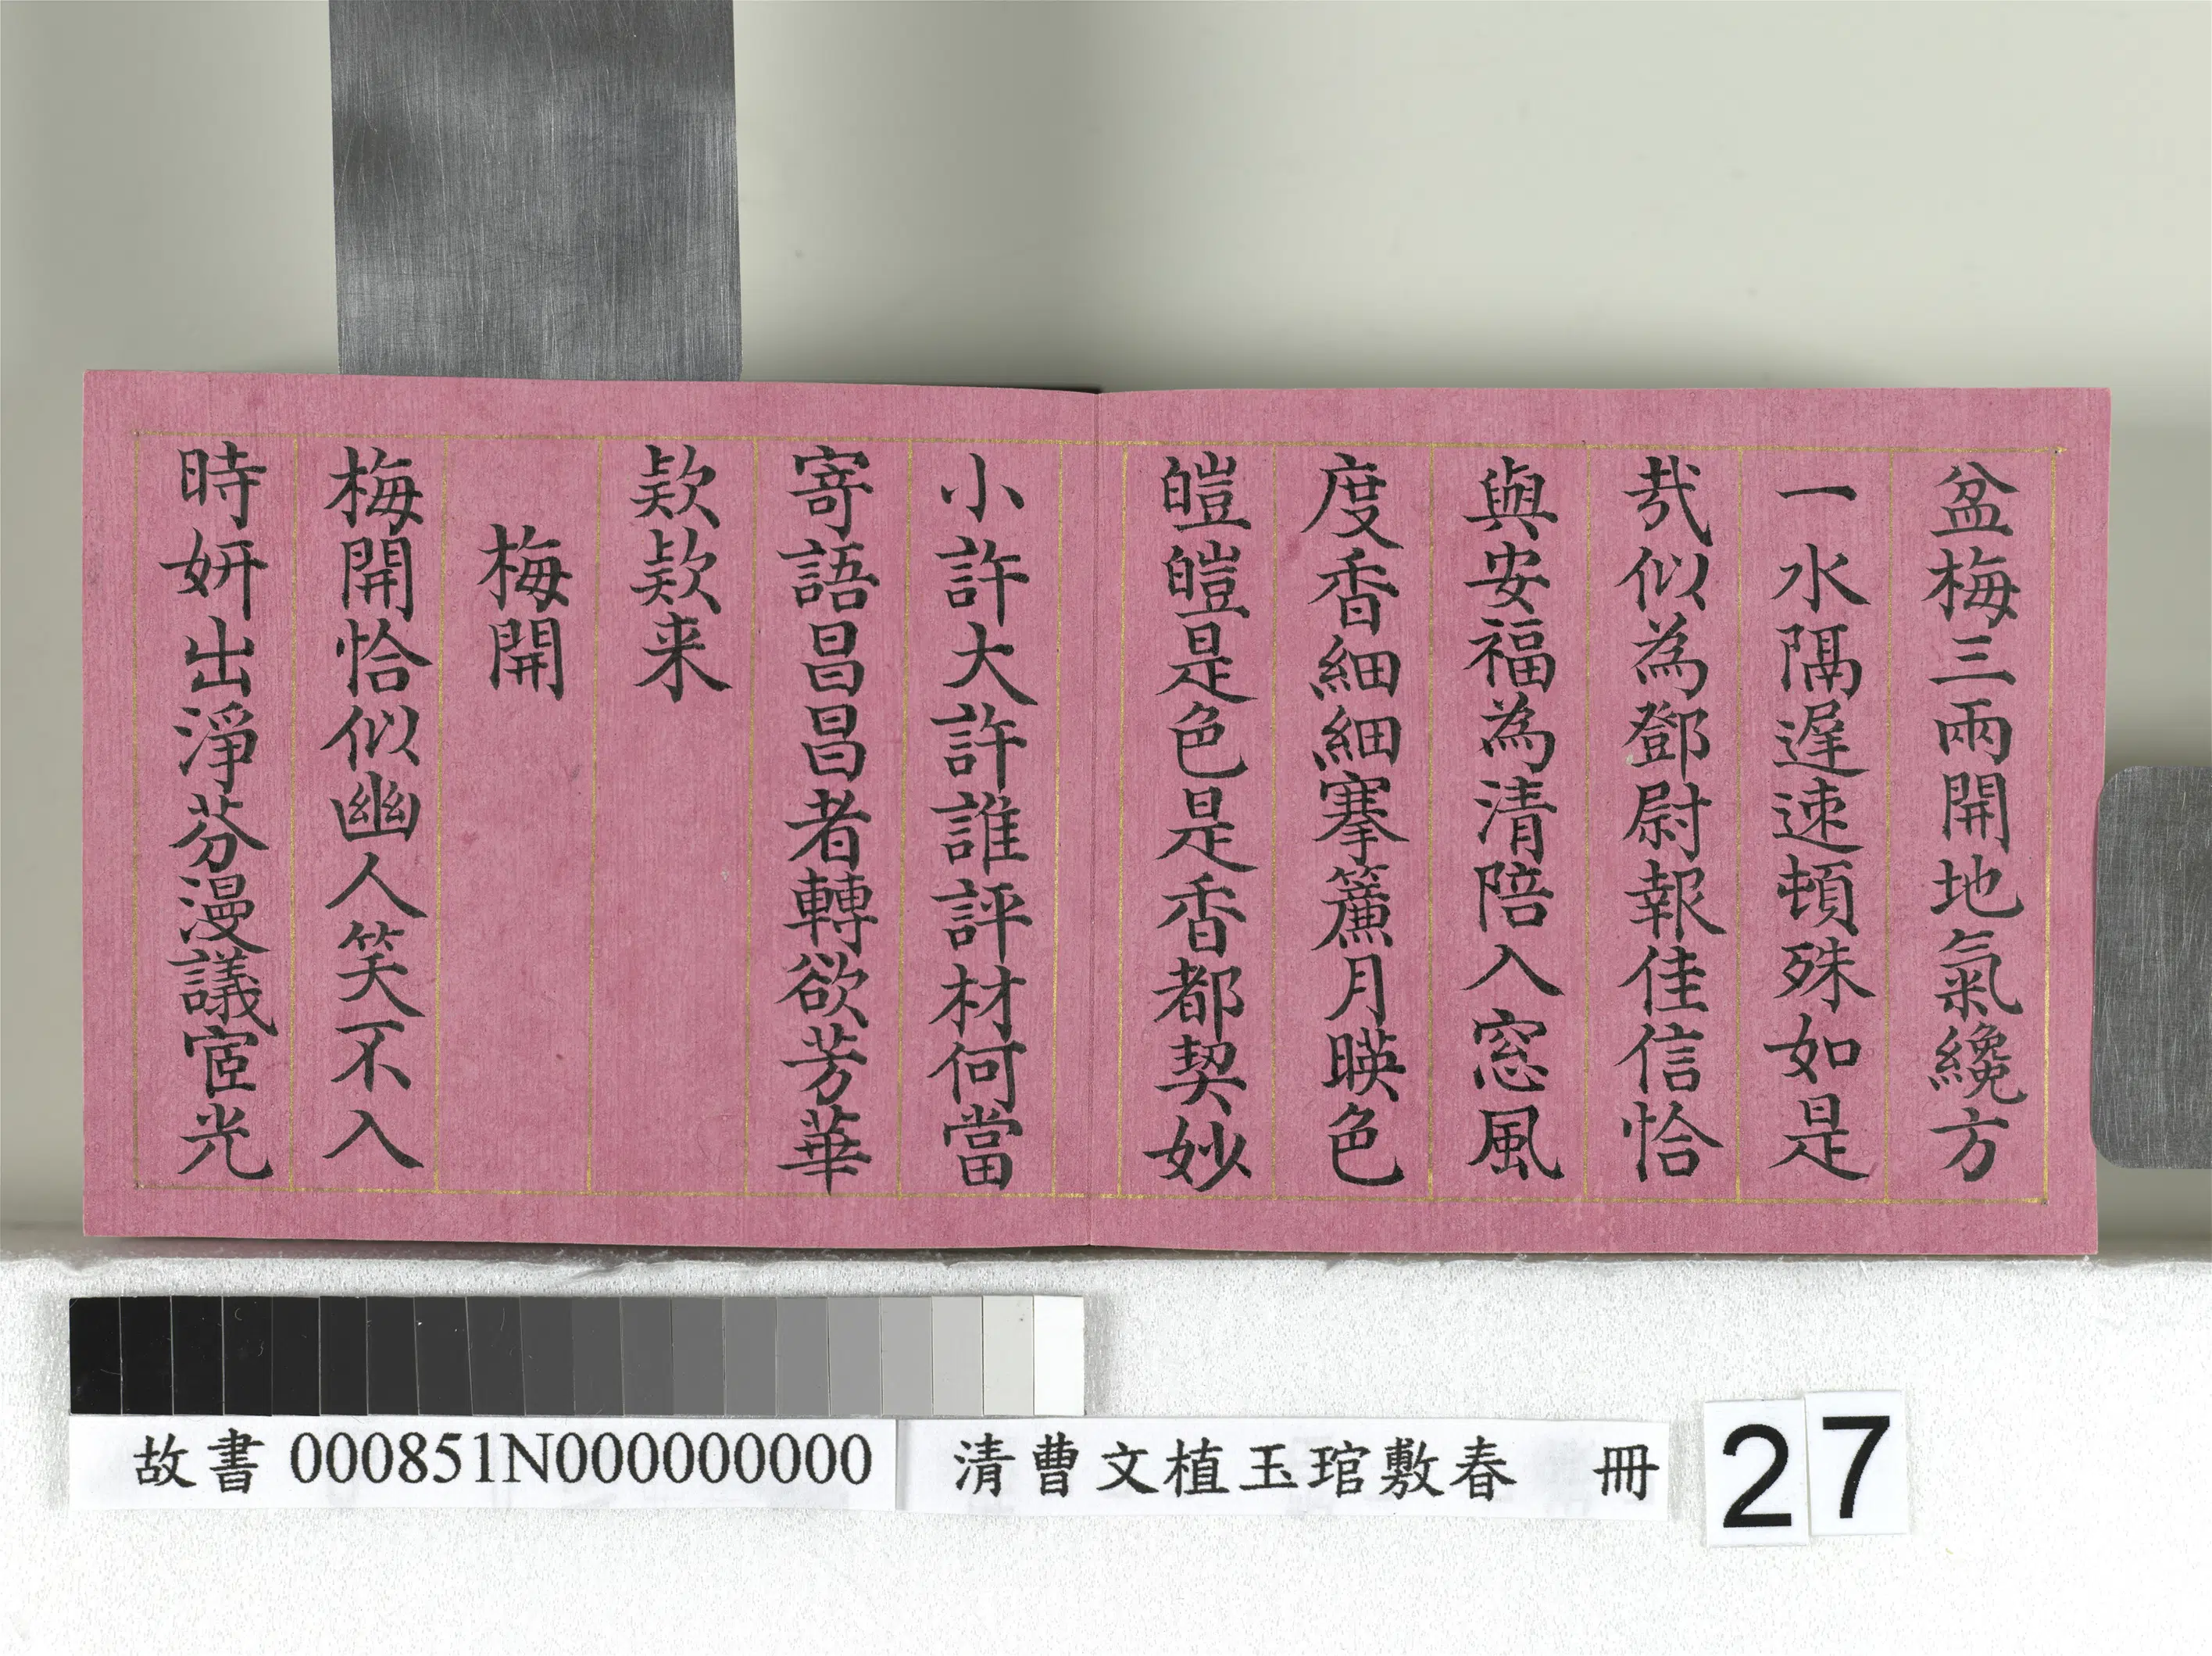 盆梅三兩開地氣纔方
一水隔遲速頓殊如是
哉似為鄧尉報佳信恰
與安福為清陪入窓風
度香細細搴簾月暎色
皚皚是色是香都契妙
小許大許誰評材何當
寄語昌昌者轉欲芳華
欵欵来
梅開
梅開恰似幽人笑不入
時妍出淨芬漫議宧光
故書 000851N000000000
清曹文植玉琯敷春 冊
27